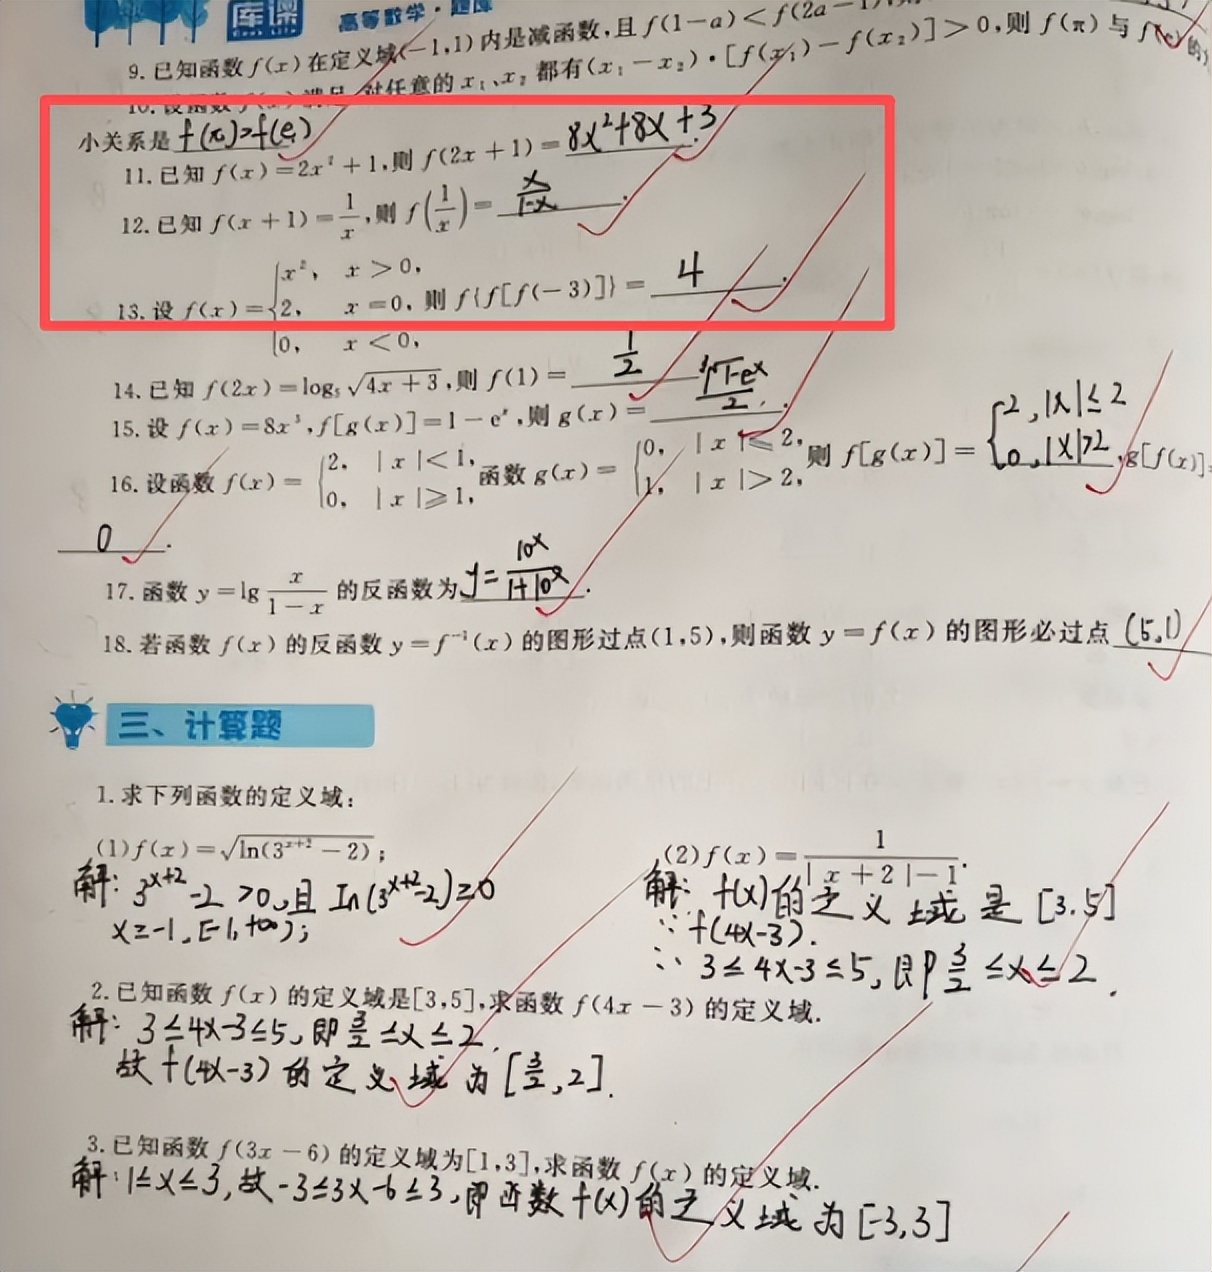 库课
高等数学·题库
9. 已知函数 f(x) 在定义域(-1,1)内是减函数,且 f(1-a)<f(2a-1),
10. 设函数 f(x) 满足,对任意的 x₁、x₂ 都有(x₁-x₂)·[f(x₁)-f(x₂)]>0,则 f(π) 与 f(e) 的
小关系是 f(π)>f(e)
11. 已知 f(x)=2x²+1,则 f(2x+1)= 8x²+8x+3.
12. 已知 f(x+1)=1/x,则 f(1/x)= x/(1-x).
13. 设 f(x)={x², x>0, 2, x=0, 0, x<0, 则 f{f[f(-3)]}= 4.
14. 已知 f(2x)=log₅√(4x+3),则 f(1)= 1/2
15. 设 f(x)=8x³,f[g(x)]=1-eˣ,则 g(x)= ³√(1-eˣ)/2.
16. 设函数 f(x)={2, |x|<1, 0, |x|≥1, 函数 g(x)={0, |x|≤2, 1, |x|>2, 则 f[g(x)]= {2, |x|≤2 0, |x|>2, g[f(x)]=
0.
17. 函数 y=lg x/(1-x) 的反函数为 y=10ˣ/(1+10ˣ).
18. 若函数 f(x) 的反函数 y=f⁻¹(x) 的图形过点(1,5),则函数 y=f(x) 的图形必过点 (5,1)
三、计算题
1. 求下列函数的定义域:
(1) f(x)=√(ln(3ˣ⁺²-2));
(2) f(x)=1/(|x+2|-1).
解: 3ˣ⁺²-2>0,且 ln(3ˣ⁺²-2)≥0
x≥-1,[-1,+∞);
解: f(x)的定义域是[3.5]
∵ f(4x-3).
∵ 3≤4x-3≤5,即 3/2≤x≤2.
2. 已知函数 f(x) 的定义域是[3,5],求函数 f(4x-3) 的定义域.
解: 3≤4x-3≤5,即 3/2≤x≤2.
故 f(4x-3) 的定义域为[3/2,2].
3. 已知函数 f(3x-6) 的定义域为[1,3],求函数 f(x) 的定义域.
解: 1≤x≤3,故 -3≤3x-6≤3,即函数 f(x) 的定义域为[-3,3]